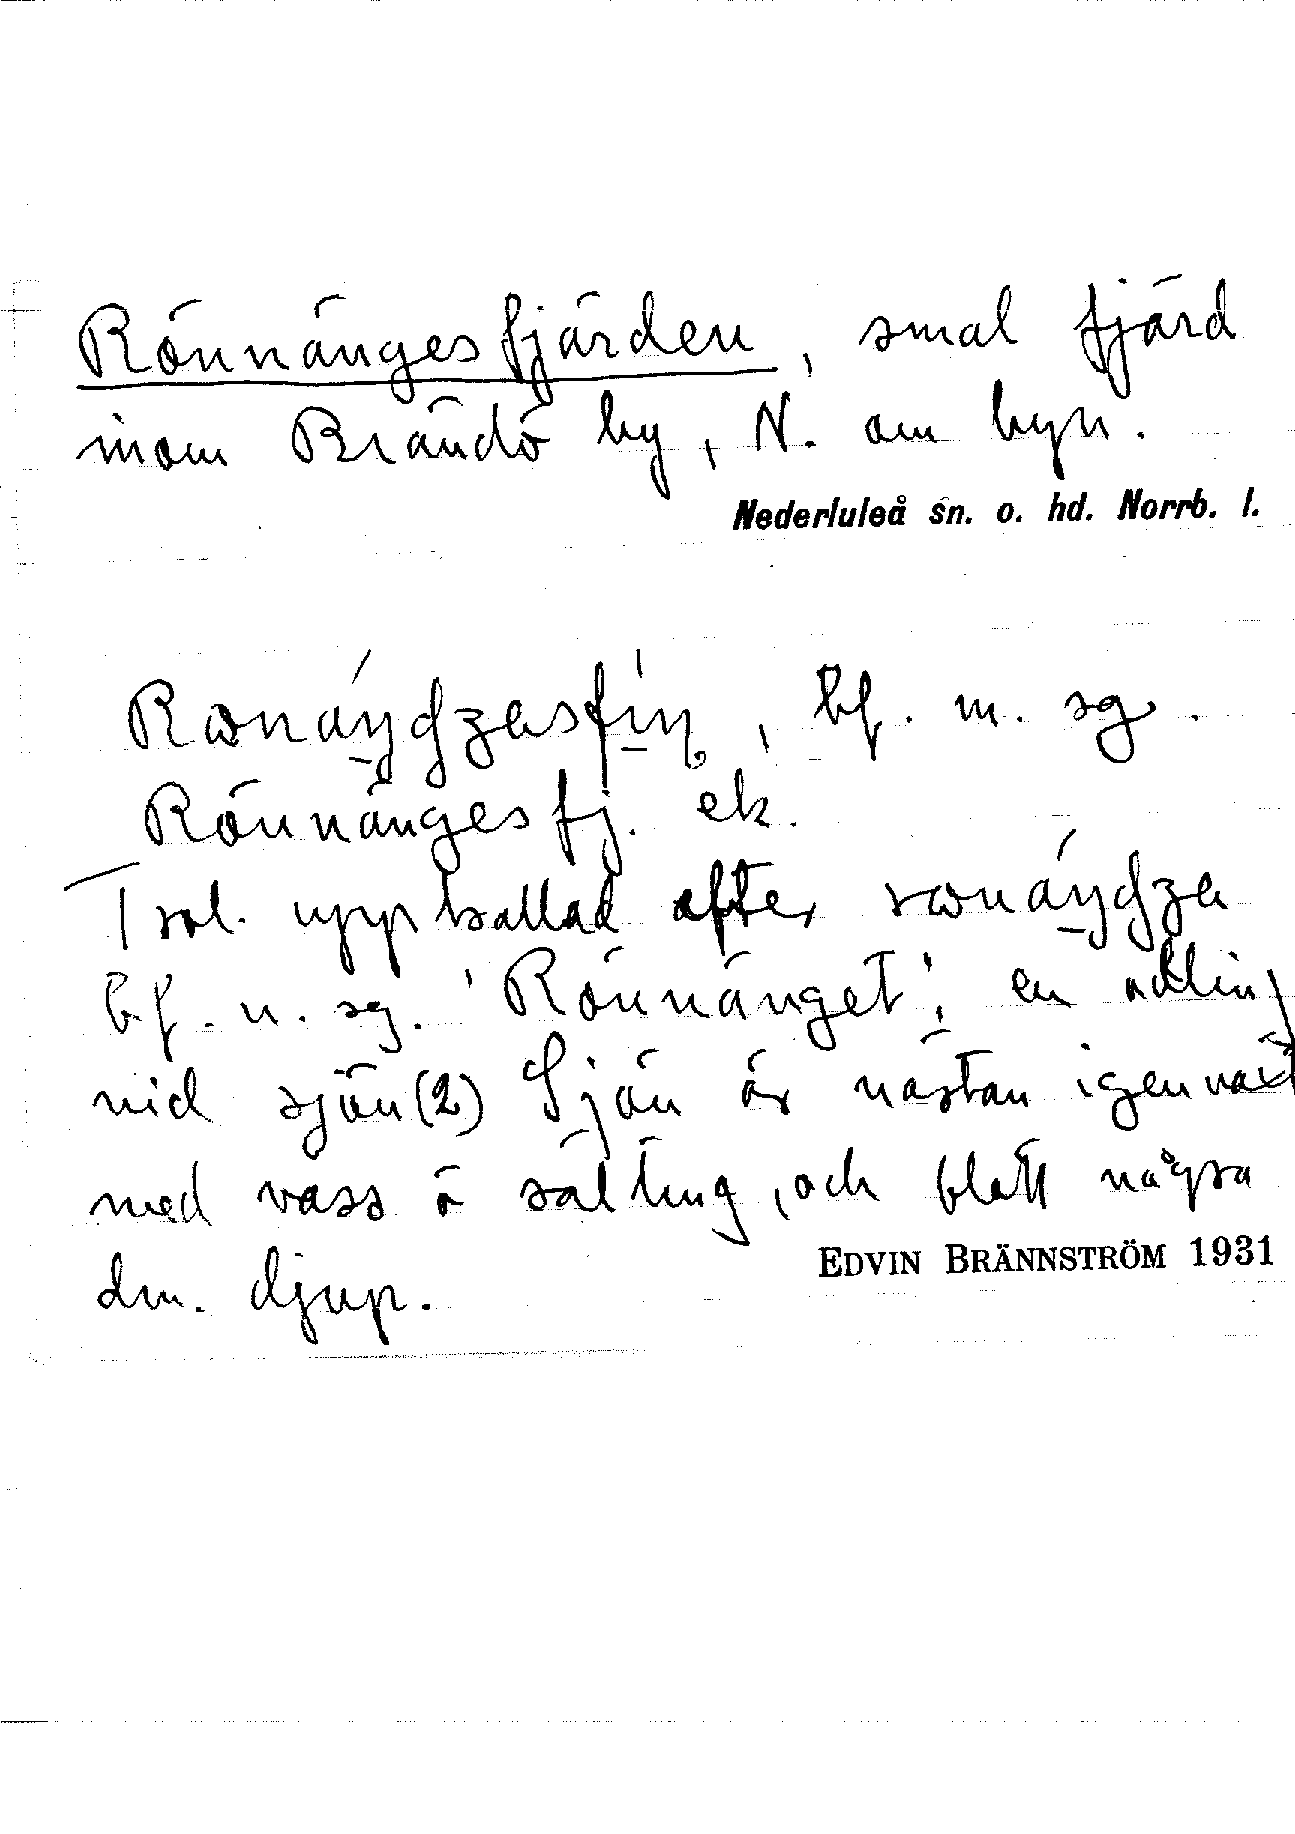 Rönnängesfjärden, smal fjärd
inom Brändö by, N. om byn.
Nederluleå sn. o. hd. Norrb. l.
bf. m. sg.
Rönnängesfj. ek.
Trol. uppkallad efter
bf. n. sg. 'Rönnänget', en odling
vid sjön (2) Sjön är nästan igenväxt
med vass o sälting, och blott några
dm. djup.
EDVIN BRÄNNSTRÖM 1931